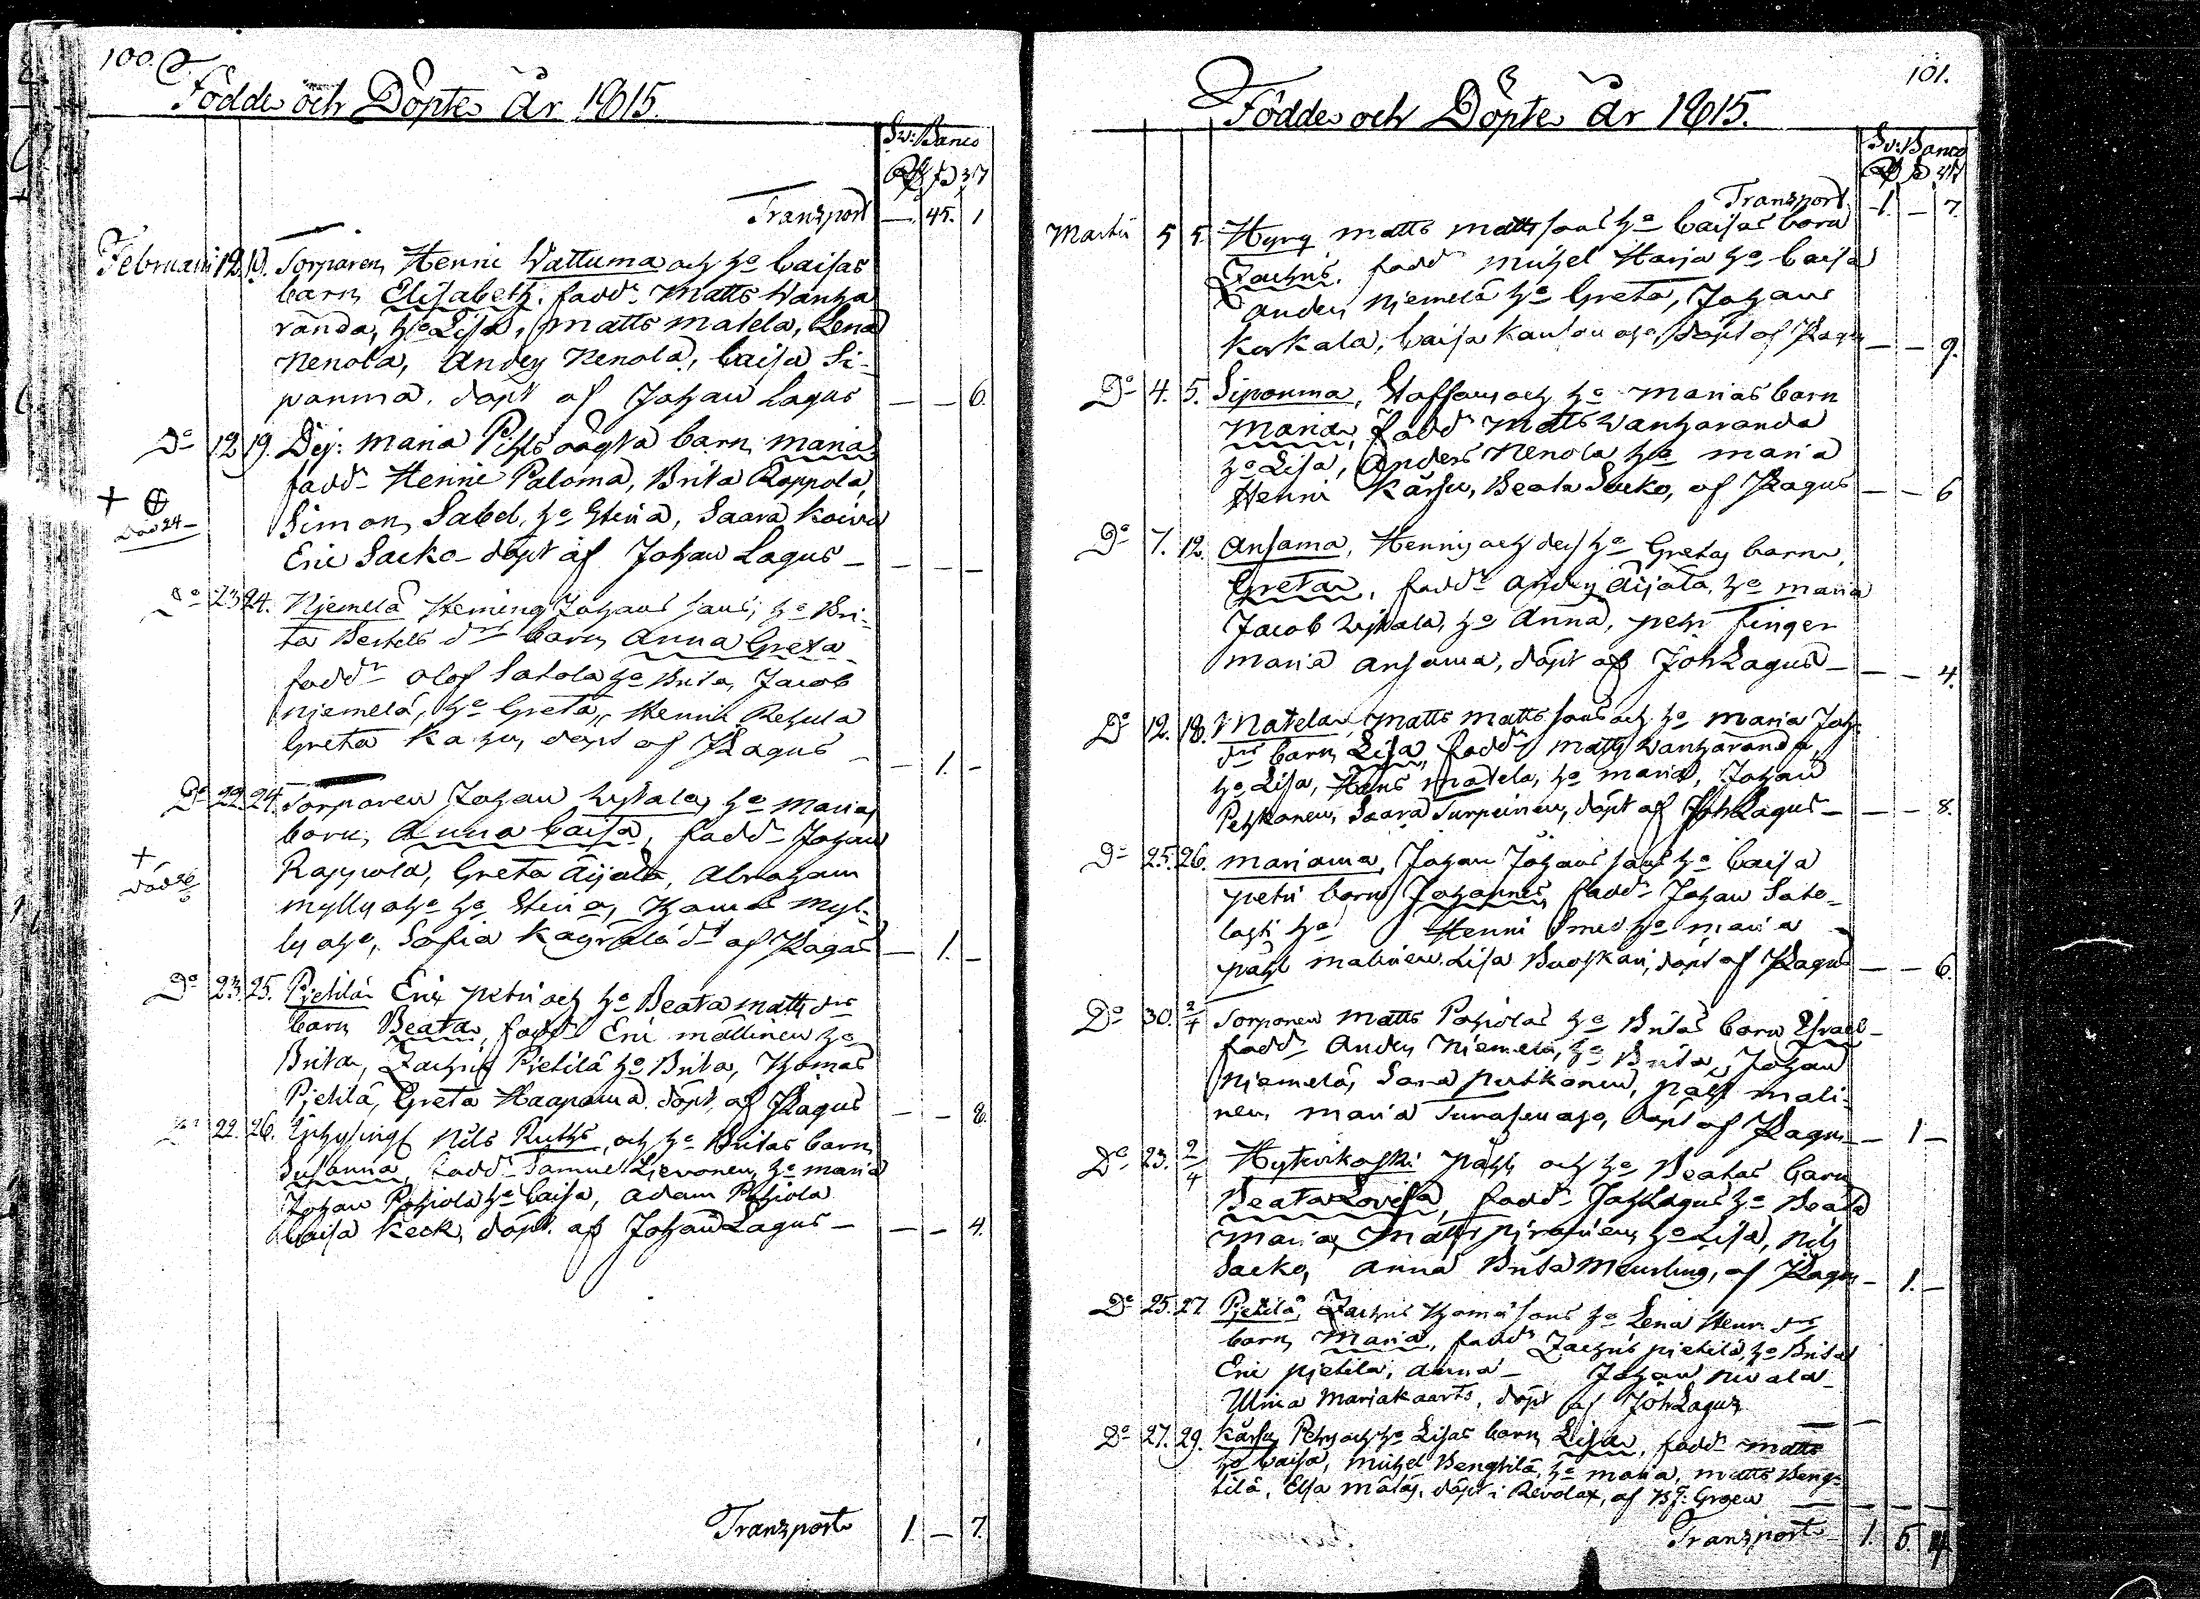 100.
Födde och Döpte År 1815.
Sv: Banco
Transport — 45. 1
Februarii 12. 19. Torparen Henric Wattuma och h:o Caisas
barn Elisabeth. fadd:r Matts Wanha
randa, h:o Lisa, Matts Matela, Lena
Nenola, Anders Nenola, Caisa Si-
ponma. döpt af Johan Lagus — — 6.
D:o 12 19. Pij: Maria Pihls oägta barn Maria
fadd:r Henric Paloma, Brita Rappola
Simon Sabel, h:o Stina, Saara Koivu
Eric Sacko döpt af Johan Lagus — — — —
död 24
D:o 23 24. Njemelä Heming Johans sons, h:o Bri-
ta Bertils d:r barn Anna Greta
fadd:r Olof Satola h:o Brita, Jacob
Njemelä, h:o Greta, Henric Rehula
Greta Kahu, döpt af JLagus — — 1. —
D:o 22. 24. Torparen Johan h:o Marias
barn Anna Caisa, fadd:r Johan
Rappola, Greta Äijälä, Abraham
Myllyaho h:o Stina, Thomas Myl-
lyaho, Sofia d:t af JLagus — 1. —
död
D:o 23. 25. Pjetilä Eric Petri och h:o Beata Matts d:r
barn Beata, fadd:r Eric Mallinen h:o
Brita, Zachris Pietilä h:o Brita, Thomas
Pjetilä, Greta Haapama. döpt af JLagus — — 8.
D:o 22. 26. Nils Ruths, och h:o Britas barn
Susanna, fadd:r Samuel h:o Maria
Johan Pohjola h:o Caisa, Adam Pohjola
Caisa Keck, döpt af Johan Lagus — — — 4.
Transport 1. — 7.
101.
Födde och Döpte År 1815.
Sv: Banco
Transport 1. — 7.
Martii 5 5. Hyry Matts Matts sons h:o Caisas barn
Zachris. fadd:r Michel Harja h:o Caisa
Anders Njemelä h:o Greta, Johans
Korkala, Caisa döpt af JLagus — — 9.
D:o 4. 5. Siponma, Staffan och h:o Marias barn
Maria, fadd:r Matts Wanharanda
h:o Lisa, Anders Nenola h:o Maria
Henric Kärsu, Beata Sacko, af JLagus — — 6
D:o 7. 12. Ansama, Henric och dess h:o Gretas barn,
Greta, fadd:r Anders Äijälä, h:o Maria
Jacob h:o Anna, Pehr Finger
Maria Ansama, döpt af Joh Lagus — — — 4.
D:o 12. 18. Matela, Matts Matts sons och h:o Maria Joh:
d:rs barn Lisa, fadd:r Matts Wanharanda,
h:o Lisa, Hans Matela, h:o Maria, Johan
Pehkonen, Saara Turpeinen, döpt af Joh Lagus — — — 8.
D:o 25. 26. Mariama, Johan Johans sons h:o Caisa
Petri barn Johannes, fadd:r Johan Sato-
lahti h:o Henric Smed h:o Maria
Påhl Malinen Lisa Buoskari, döpt af JLagus — — 6.
D:o 30. 2/4 Torparen Matts Pohjolas h:o Britas barn Israel
fadd:r Anders Njemelä, h:o Brita, Johan
Njemelä, Sara Pertkonen, Påhl Mali-
nen Maria döpt af JLagus — 1 —
D:o 23. 2/4 Hyttikoski Påhls och h:o Beatas barn
Beata Lovisa, fadd:r Joh Lagus h:o Beata
Maria, Matts h:o Lisa, Nils
Sacko, Anna Brita Meurling, af JLagus — 1. —
D:o 25. 27 Pjetilä, Zachris Thomæ sons h:o Lena Henr: d:rs
barn Maria, fadd:r Zachris Pietilä, h:o Brita
Eric Pjetilä, Anna — Johan Nivala
Ulrica Mariakaarto, döpt af Joh Lagus — —
D:o 27. 29. Kärsu Pehrs och h:o Lisas barn Lisa, fadd:r Matts
h:o Caisa, Michel Bengtilä, h:o Maria, Matts Beng-
tilä, Elsa Mätäs. döpt i Revolax, af — — — —
Transport 1. 5.